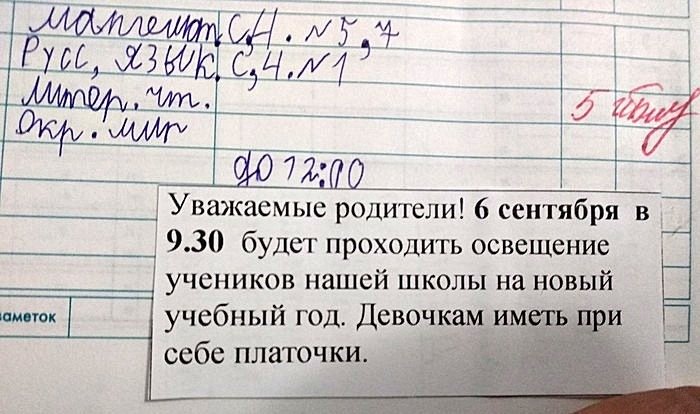 математ. с,4. №5,7
Русс, язык. с,4. №1
Литер. чт.
Окр. мир
5
до 12:00
Уважаемые родители! 6 сентября в
9.30 будет проходить освещение
учеников нашей школы на новый
учебный год. Девочкам иметь при
себе платочки.
заметок